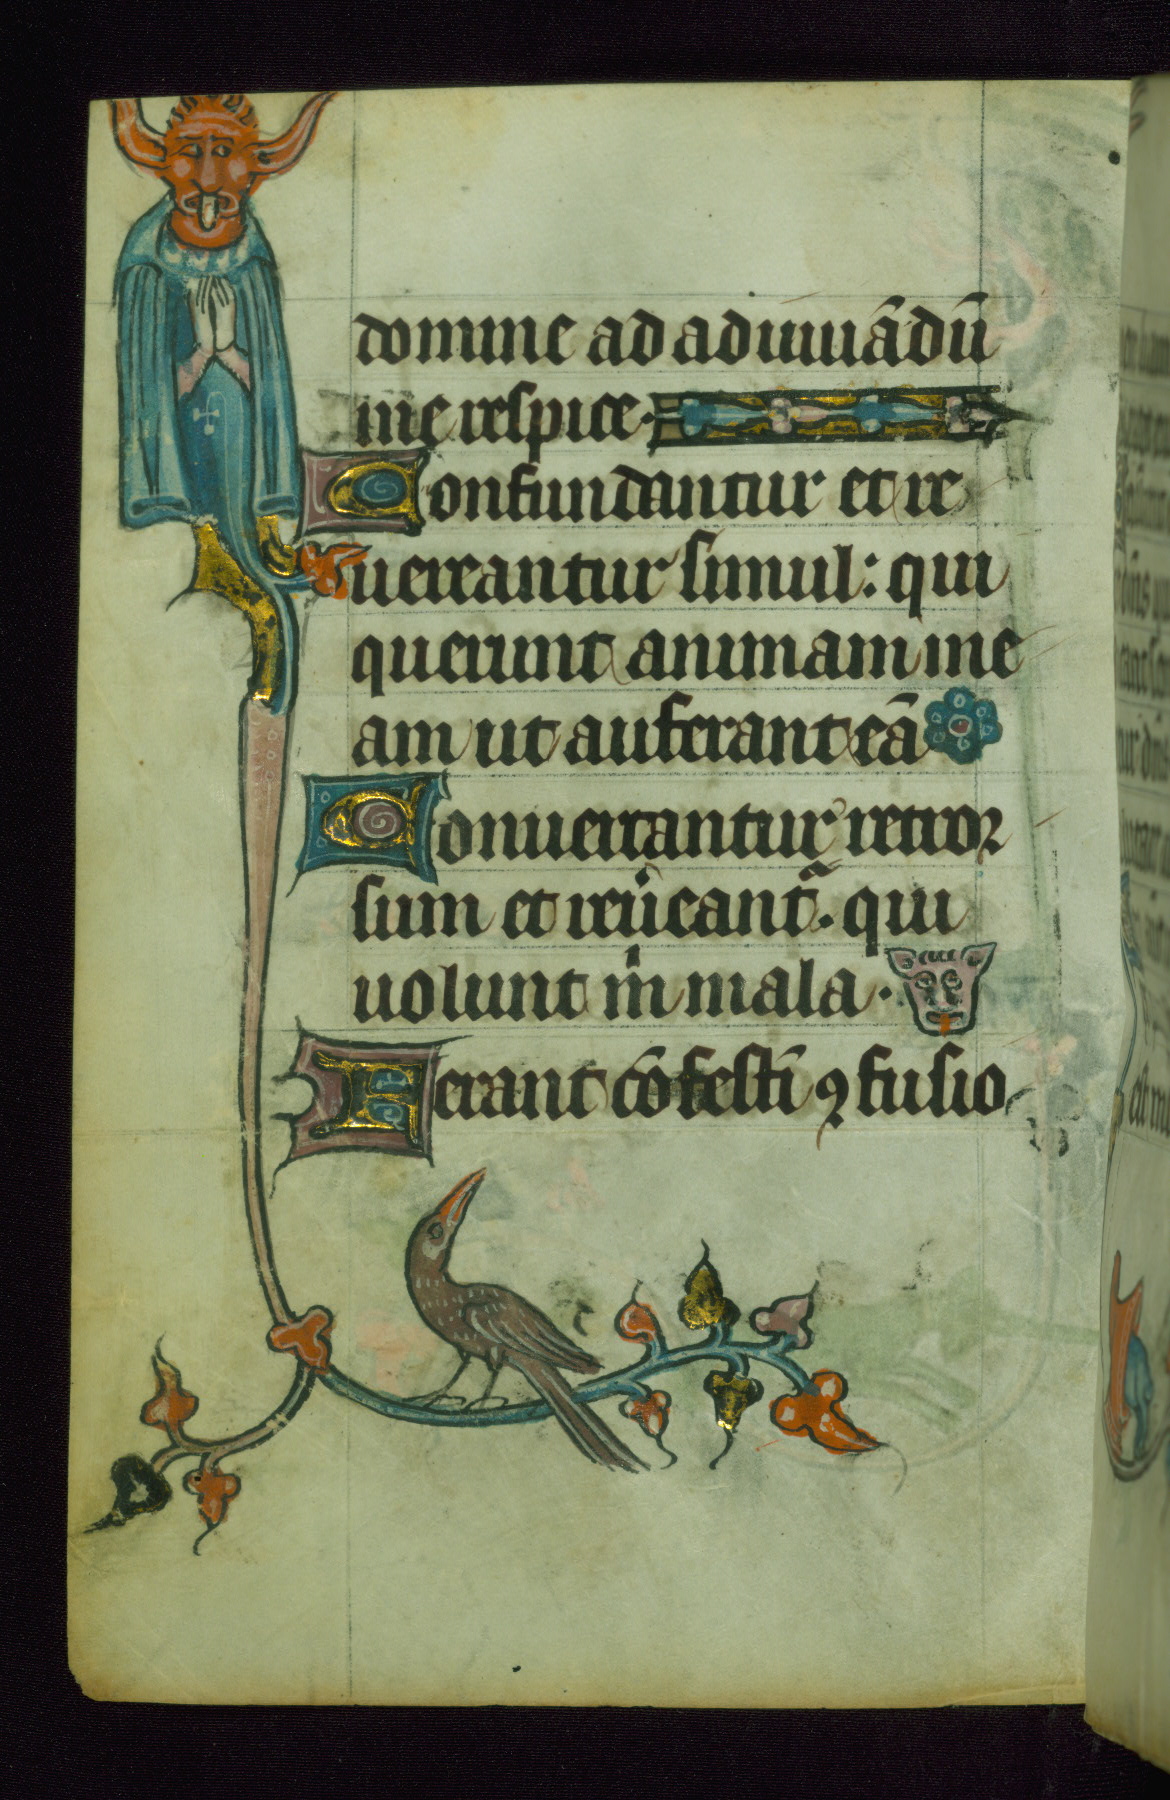 domine ad adiuuādū
me respice.
Confundantur et re
uereantur simul: qui
querunt animam me
am ut auferant eā
Conuertantur retror
sum et reu̾eantᷓ. qui
uolunt m̍ mala.
Ferant cōfestī ꝯfusio